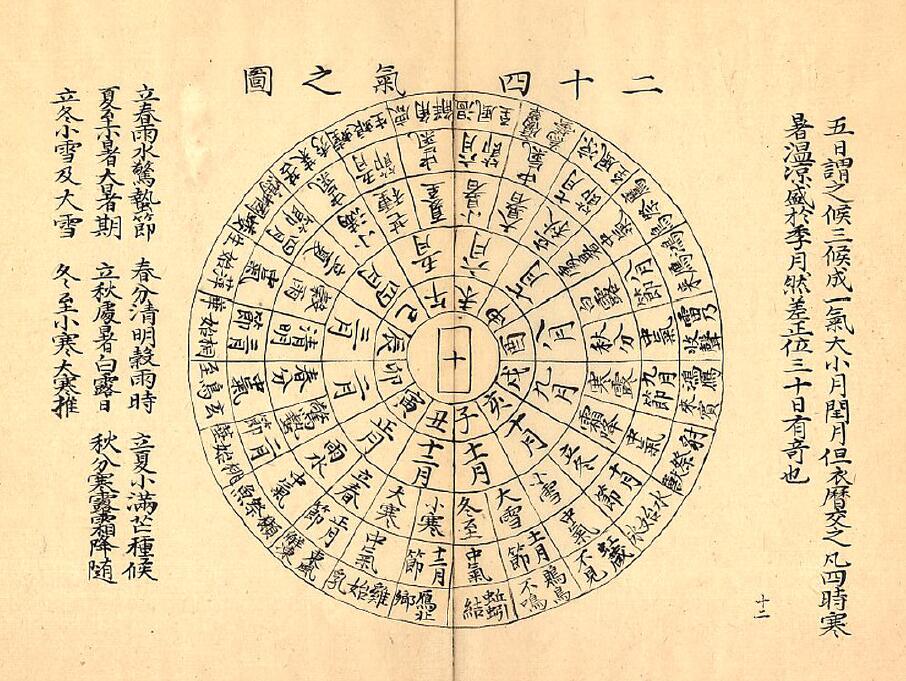 二十四氣之圖
五日謂之候三候成一氣大小月閏月但衣曆交之凡四時寒
暑溫涼盛於季月然差正位三十日有奇也
十二
十
子 丑 寅 卯 辰 巳 午 未 申 酉 戌 亥
十一月 十二月 正月 二月 三月 四月 五月 六月 七月 八月 九月 十月
冬至 小寒 大寒 立春 雨水 驚蟄 春分 清明 穀雨 立夏 小滿 芒種 夏至 小暑 大暑 立秋 處暑 白露 秋分 寒露 霜降 立冬 小雪 大雪
中氣 十二月節 中氣 正月節 中氣 二月節 中氣 三月節 中氣 四月節 中氣 五月節 中氣 六月節 中氣 七月節 中氣 八月節 中氣 九月節 中氣 十月節 中氣 十一月節
蚯蚓結 雁北鄉 雞始乳 東風解凍 獺祭魚 桃始華 玄鳥至 桐始華 萍始生 苦菜秀 鹿角解 溫風至 涼風至 鷹祭鳥 雷乃收聲 鴻鴈來賓 豺祭獸 水始冰 虹藏不見 鶡鳥不鳴
立春雨水驚蟄節 春分清明穀雨時 立夏小滿芒種候
夏至小暑大暑期 立秋處暑白露日 秋分寒露霜降隨
立冬小雪及大雪 冬至小寒大寒推